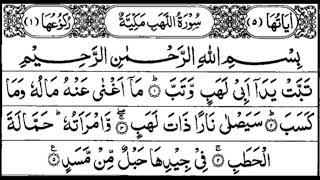 اٰیَاتُهَا (٥) سُوْرَةُ اللَّهَبِ مَكِّيَّةٌ رُكُوْعُهَا (١)
بِسْمِ اللّٰهِ الرَّحْمٰنِ الرَّحِيْمِ
تَبَّتْ يَدَاۤ اَبِيْ لَهَبٍ وَّتَبَّ ۝١ مَاۤ اَغْنٰى عَنْهُ مَالُهٗ وَمَا
كَسَبَ ۝٢ سَيَصْلٰى نَارًا ذَاتَ لَهَبٍ ۝٣ وَّامْرَاَتُهٗ ؕ حَمَّالَةَ
الْحَطَبِ ۝٤ فِيْ جِيْدِهَا حَبْلٌ مِّنْ مَّسَدٍ ۝٥